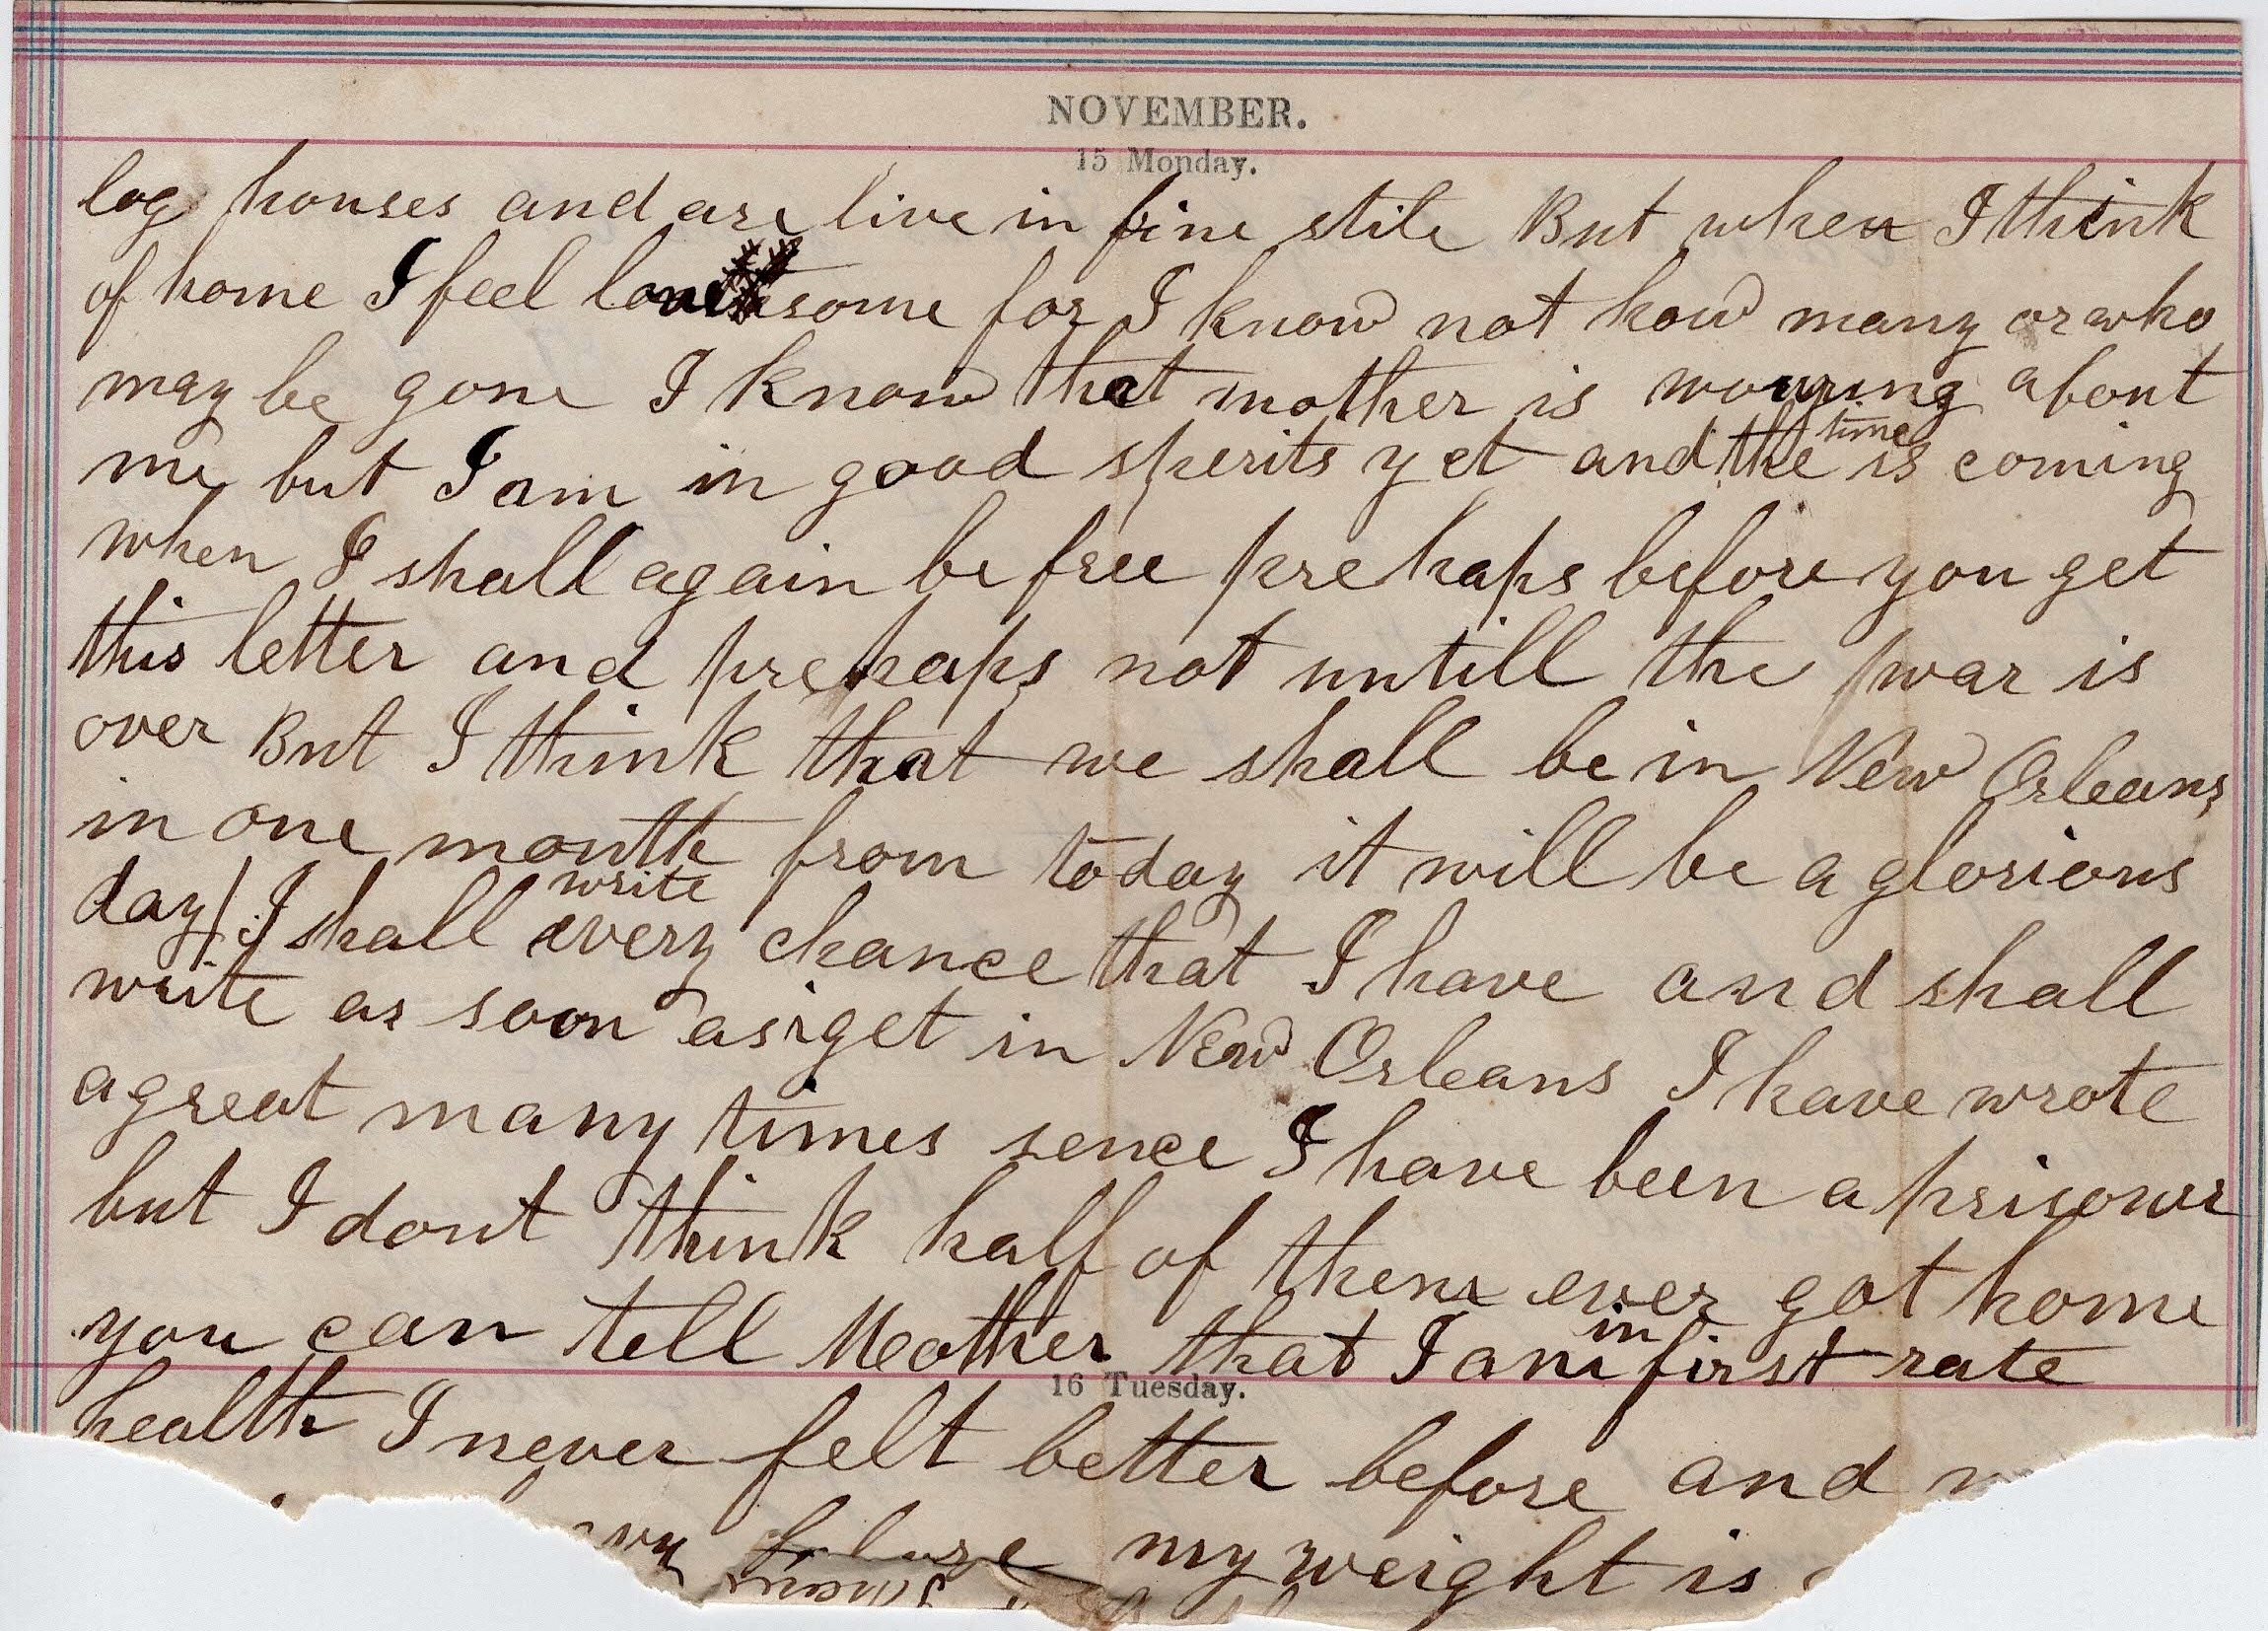 NOVEMBER.
15 Monday.
log houses and are live in fine stile But when I think
of home I feel lonesome for I know not how many or who
may be gone I know that mother is wouring about
me but I am in good sperits yet and the time is coming
when I shall again be free prehaps before you get
this letter and prehaps not untill the war is
over But I think that we shall be in New Orleans
in one month from today it will be a glorious
day I shall write every chance that I have and shall
write as soon as i get in New Orleans I have wrote
a great many times sence I have been a prisoner
but I dont think half of them ever got home
you can tell Mother that I am in first rate
16 Tuesday.
health I never felt better before and
before my weight is